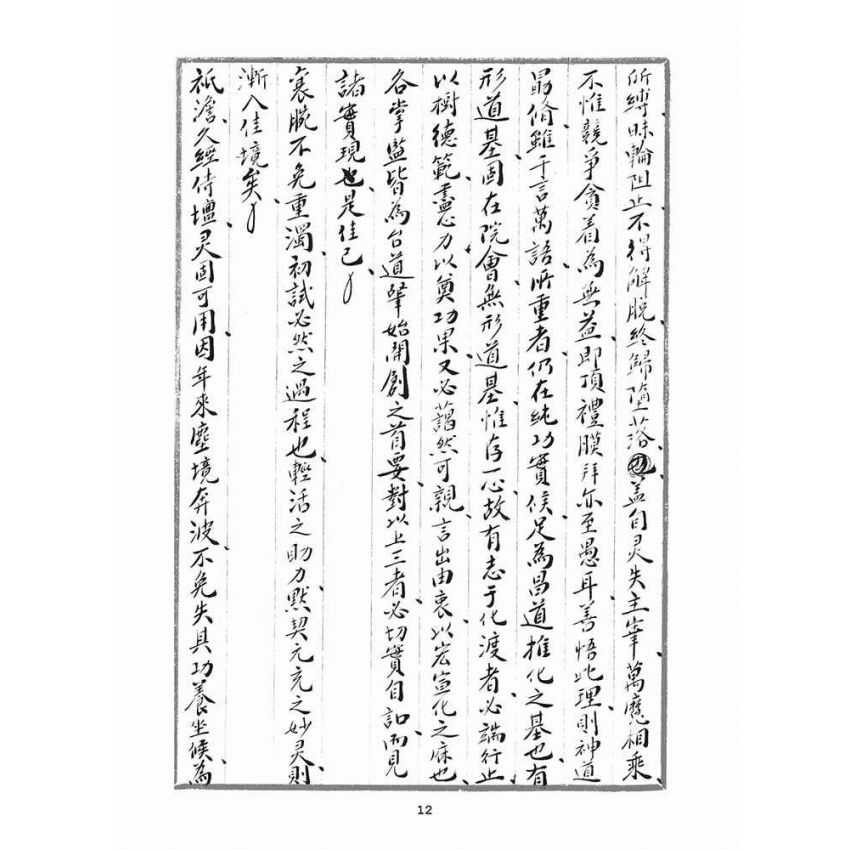 所縛昧輪阻止不得解脫終歸墮落蓋自灵失主宰萬魔相乘
不惟競爭貪着為無益即頂禮膜拜亦至愚耳善悟此理則神道
易脩雖千言萬語所重者仍在純功實候足為昌道推化之基也有
形道基固在院會無形道基惟存一心故有志于化渡者必端行止
以樹德範盡心力以奠功果又必藹然可親言出由衷以宏宣化之庥也
各掌監皆為台道肇始開創之首要對以上三者必切實自詔而見
諸實現也是佳已
襄腕不免重濁初試必然之過程也輕活之助力默契元充之妙灵則
漸入佳境矣
祇澹久經侍壇灵固可用因年來塵境奔波不免失具功養坐候為
12